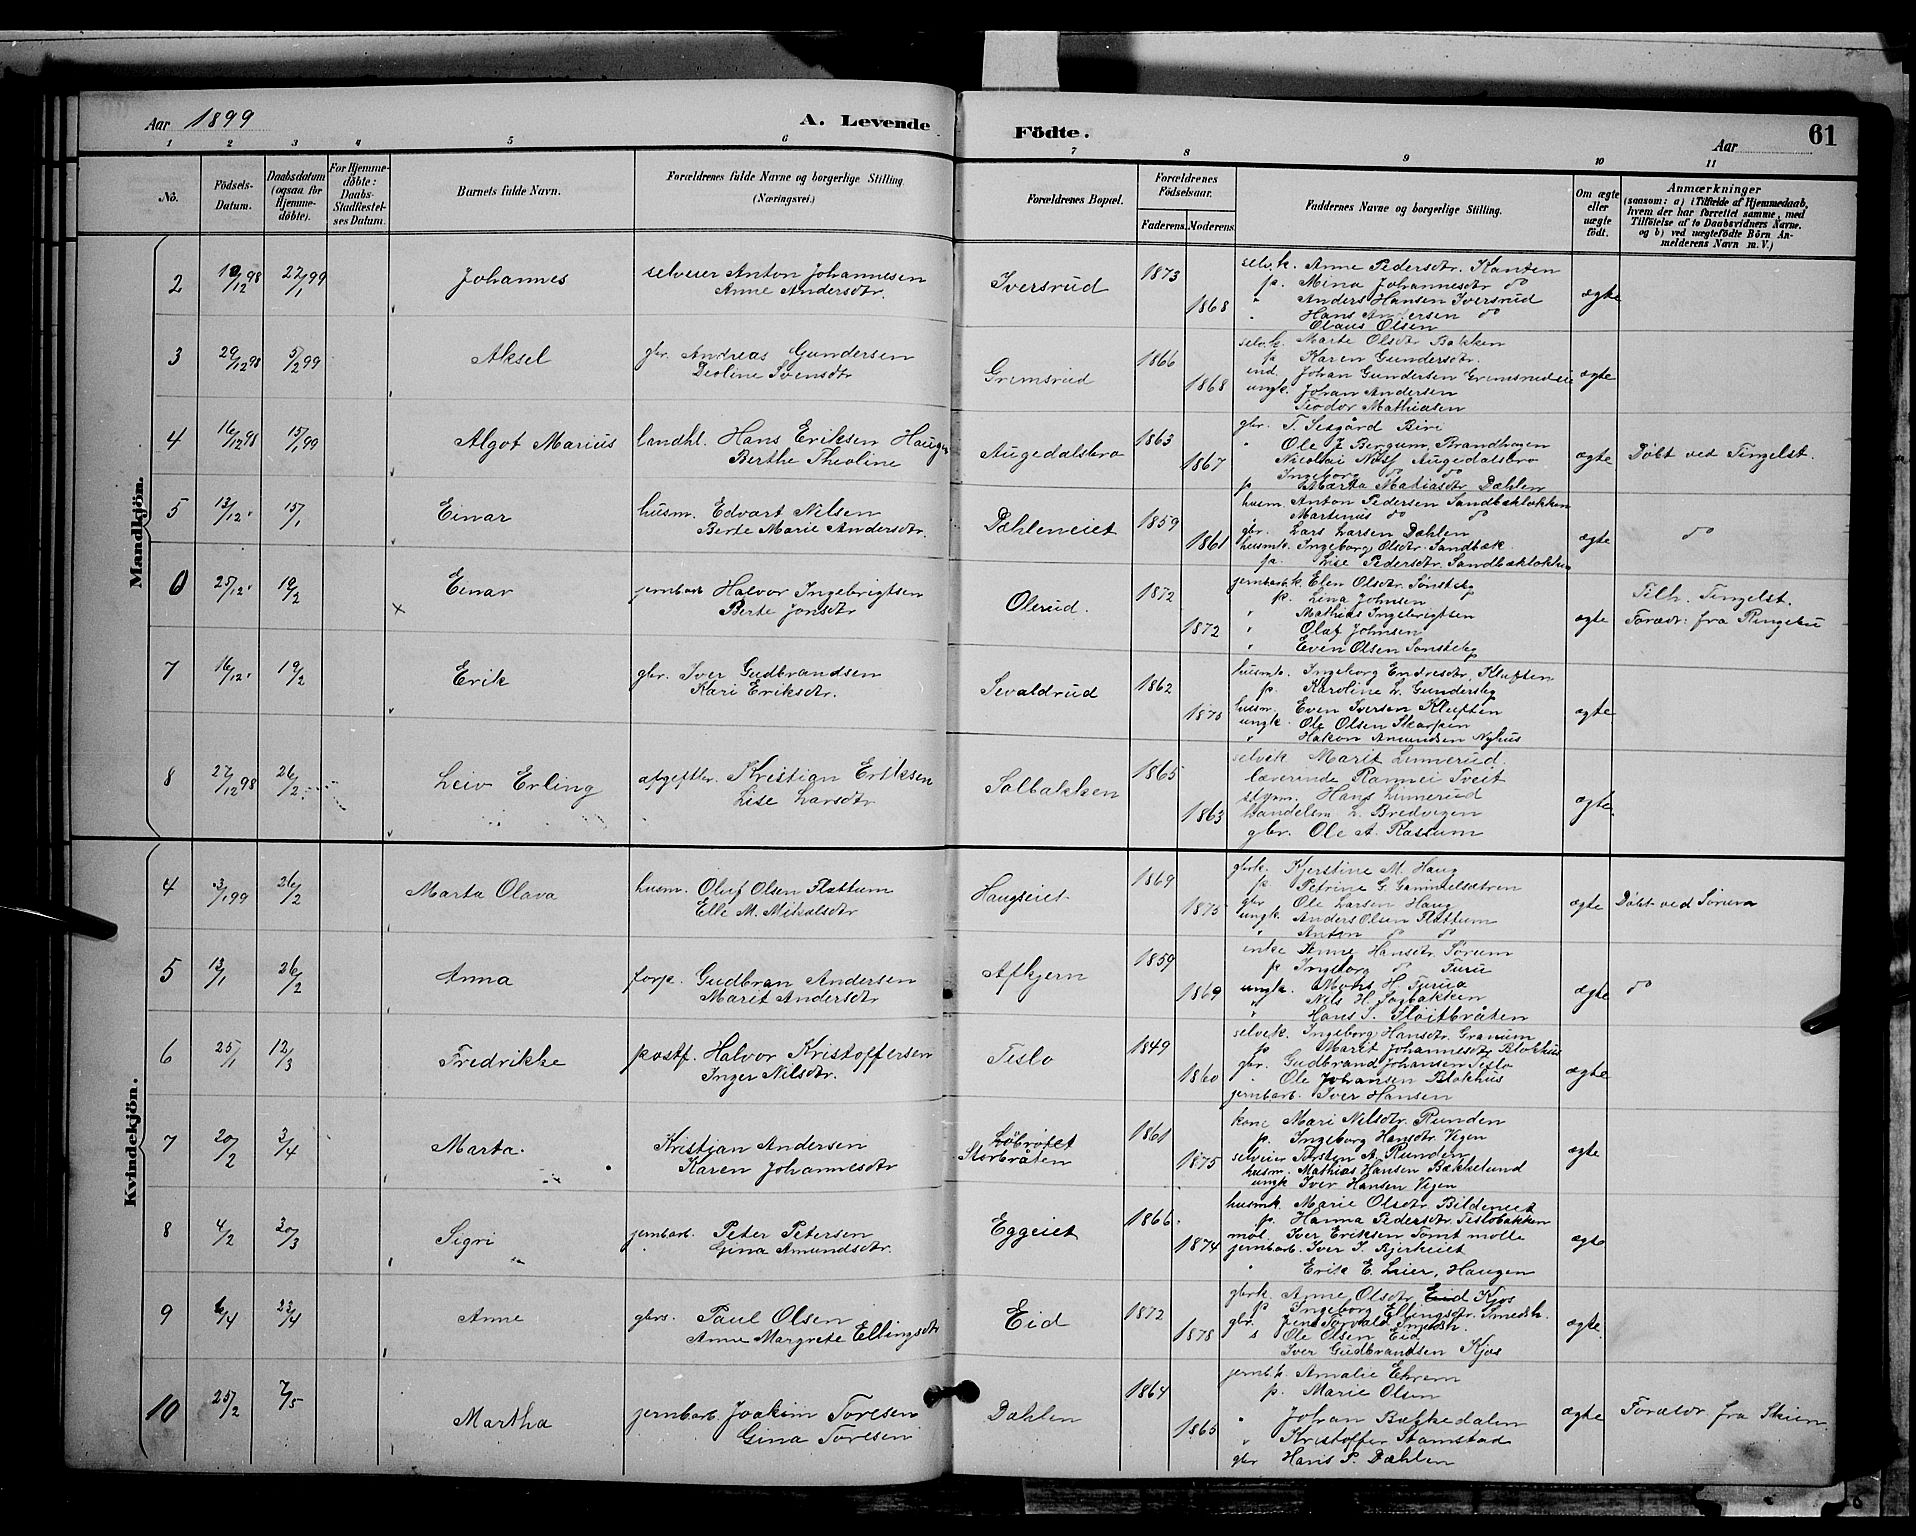 Aar 1899
A. Levende
Födte.
Aar
61
1 2 3 4 5 6 7 8 9 10 11
No.
Födsels-Datum.
Daabsdatum (ogsaa for Hjemme-döbte).
For Hjemme-döbte: Daabs-Stadfæstel-ses Datum.
Barnets fulde Navn.
Forældrenes fulde Navne og borgerlige Stilling. (Næringsvei.)
Forældrenes Bopæl.
Forældrenes Födselsaar.
Faderens.
Moderens.
Faddernes Navne og borgerlige Stilling.
Om ægte eller uægte födt.
Anmærkninger
(saasom: a) i Tilfælde af Hjemmedaab,
hvem der har forrettet samme, med
Tilföielse af to Daabsvidners Navne.
og b) ved uægtefödte Börn An-
melderens Navn m. V.)
Mandkjön.
2 10/12 98 22/1 99 Johannes selveier Anton Johannesen
Anne Andersdtr.
Iversrud 1873 1868
selv.k. Anne Pedersdtr. Kanten
p. Mina Johannesdtr do
" Anders Hansen Iversrud
Hans Andersen do
Olaus Olsen
ægte
3 29/12 98 5/2 99 Aksel gbr. Andreas Gundersen
Deoline Svensdtr
Grimsrud 1866 1868
selv.k. Marte Olsdtr Bakken
p Karen Gundersdtr.
ind. Johan Gundersen Grimsrudeie
ungk. Johan Andersen
Teodor Mathiasen
ægte
4 16/12 98 15/1 99 Algot Marius landhl. Hans Eriksen Haugen
Berthe Theoline
Augedalsbro 1863 1867
gbr. T. Sesgård Biri
" Ole J. Bergum, Brandhagen
Nicolai Næss Augedalsbro
Ingeborg do do
p Marta Matiasdtr Dahlen
ægte
Döbt ved Tingelst.
5 13/12 15/1 Einar husm. Edvart Nilsen
Berte Marie Andersdtr.
Dæhleneiet 1859 1861
husm Anton Pedersen Sandbækløkken
Martinus do do
gbr. Lars Larsen Dæhlen
husmk. Ingeborg Olsdtr Sandbæk
pa. Lise Pedersdtr. Sandbækløkken
ægte
do
6 25/12 19/2 Einar jernbarb Halvor Ingebrigtsen
Berte Jonsdtr
Olerud. 1872 1872
jernbarb.k. Elen Olsdtr. Sønsteby
p. Lina Johnsen
" Mathias Ingebrigtsen
" Olaf Johnsen
" Even Olsen Sønsteby
ægte
Tilh. Tingelst.
Forædr: fra Ringebu
7 16/12 19/2 Erik gbr. Iver Gudbrandsen
Kari Eriksdtr.
Sevaldrud 1862 1875
husmk. Ingeborg Endresdtr, Kluften
p. Karoline L. Gundersby
husm. Even Iversen Kluften
ungk. Ole Olsen Skarpen
" Hakon Amundsen Nyhus
ægte
8 27/12 98 26/2 Leiv Erling afgiftbr. Kristian Eriksen
Lise Larsdtr
Solbakken 1865 1863
selvek Marit Linnerud.
lærerinde Rannei Tveit
stym. Hans Linnerud
handelsm L. Bredvigen
gbr. Ole A. Rastum
ægte.
Kvindekjön.
4 3/1 99 26/2 Marta Olava husm. Oluf Olsen Flattum
Elle M. Mikalsdtr
Haugseiet 1869 1875
gbrk. Kjerstine M. Haug
p. Petrine G. Gammelsætren
gbr Ole Larsen Haug
ungk. Anders Olsen Flattum
" Anton do do
ægte
Döbt ved Sørum
5 13/1 26/2 Anna forp. Gudbran Andersen
Marit Andersdtr
Afkjern 1859 1869
enke Anne Hansdtr Sørum
p Ingeborg do
ungk. Mons H.
Nils H. Sagbakken
" Hans I. Fløitbråten
ægte
do
6 25/1 12/3 Fredrikke postf. Halvor Kristoffersen
Inger Nilsdtr.
Teslo 1849 1860
selvek. Ingeborg Hansdtr Granum
p Marit Johannesdtr Blokhus
gbr. Gudbrand Johansen Teslo
" Ole Johansen Blokhus
jernbarb. Iver Hansen
ægte
7 20/2 3/4 Marta. Kristian Andersen
Karen Johannesdtr
Løbrøtet
Storbråten
1861 1875
kone Mari Nilsdtr. Runden
p. Ingeborg Hansdtr Vigen
selveier Torsten A. Runden
husm. Mathias Hansen Bækkelund
ungk Iver Hansen Vigen
ægte
8 4/2 20/3 Sigri jernbarb. Peter Petersen
Gina Amundsdtr.
Eggeiet 1866 1874
husmk. Marie Olsdtr Bildeneiet
p. Hanna Pedersdtr. Teslobakken
møl. Iver Eriksen Tomt mølle
jernbarb. Iver I. Bjerkeiet
" Erik E. Leier, Haugen
ægte
9 6/4 23/4 Anne gbrs. Paul Olsen
Anne Margrete Ellingsdtr
Eid 1872 1878
gbrk. Anne Olsdtr Eid Kjos
p Ingeborg Ellingsdtr. Smedsh.
gbr. Jens Torvald Smedsh.
s Ole Olsen Eid
Iver Gudbrandsen Kjos
ægte
10 25/2 7/5 Martha jernbarb Joakim Toresen
Gina Toresen
Dæhlen 1864 1865
jernb.k. Amalie Ehrem
p. Marie Olsen
" Johan Bækkedalen
" Kristoffer Stamstad
gbr Hans P. Dæhlen
ægte
Forældr. fra Skien